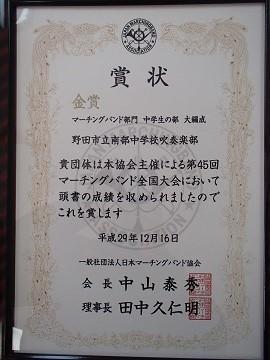 賞状
金賞
マーチングバンド部門 中学生の部 大編成
野田市立南部中学校吹奏楽部
貴団体は本協会主催による第45回
マーチングバンド全国大会において
頭書の成績を収められましたので
これを賞します
平成29年12月16日
一般社団法人日本マーチングバンド協会
会長 中山泰秀
理事長 田中久仁明